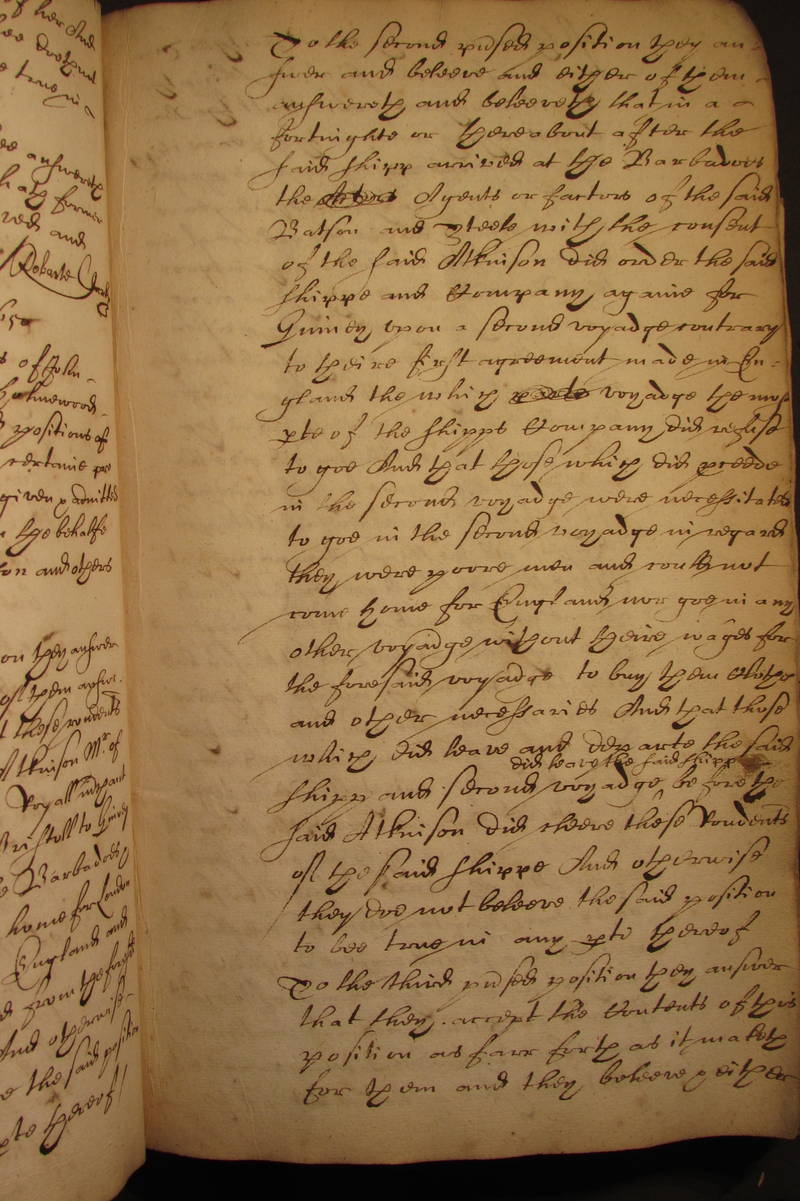 of her And
true in
answereth
hath former
ved and
Roberte
65
s of John
Holmewood
positions of
certaine pre
given p admitted
the behalfe
son and others
on they answer
of them answe
t these rendents
Atkinson Mr. of
Royall
Bristoll to Guiney
Barbadoes
home for London
England and
from the
And otherwise
e the said position
pte thereof
To the second pnsed position they an-
swer and beleeve and either of them
answereth and beleeveth that in a
fortnighte or thereabout after the
said shipp arrived at the Barbadoes
the Agents or factors of the said
Batson and Steele with the consent
of the said Atkinson did order the said
shippe and Company againe for
Guiney upon a second voyadge contrary
to theire first agreement made in En-
gland the which voyadge the most
pte of the shipps Company did refuse
to goe And that those which did pceede
in the second voyadge were necessitated
to goe in the second voyadge in regard
they were poore men and could not
come home for England nor goe in any
other voyadge without theire wages for
the foresaid voyadge to buy them Clothes
and other necessaries And that those
which did leave and departe the said
shipp and second voyadge did leave the said shipp before the
said Atkinson did cleere these Rondents
of the said shippe And otherwise
they doe not beleeve the said position
to bee true in any pte thereof
To the third pnsed position they answer
that they accept the Contents of this
position as farr forth as it maketh
for them and they beleeve & either